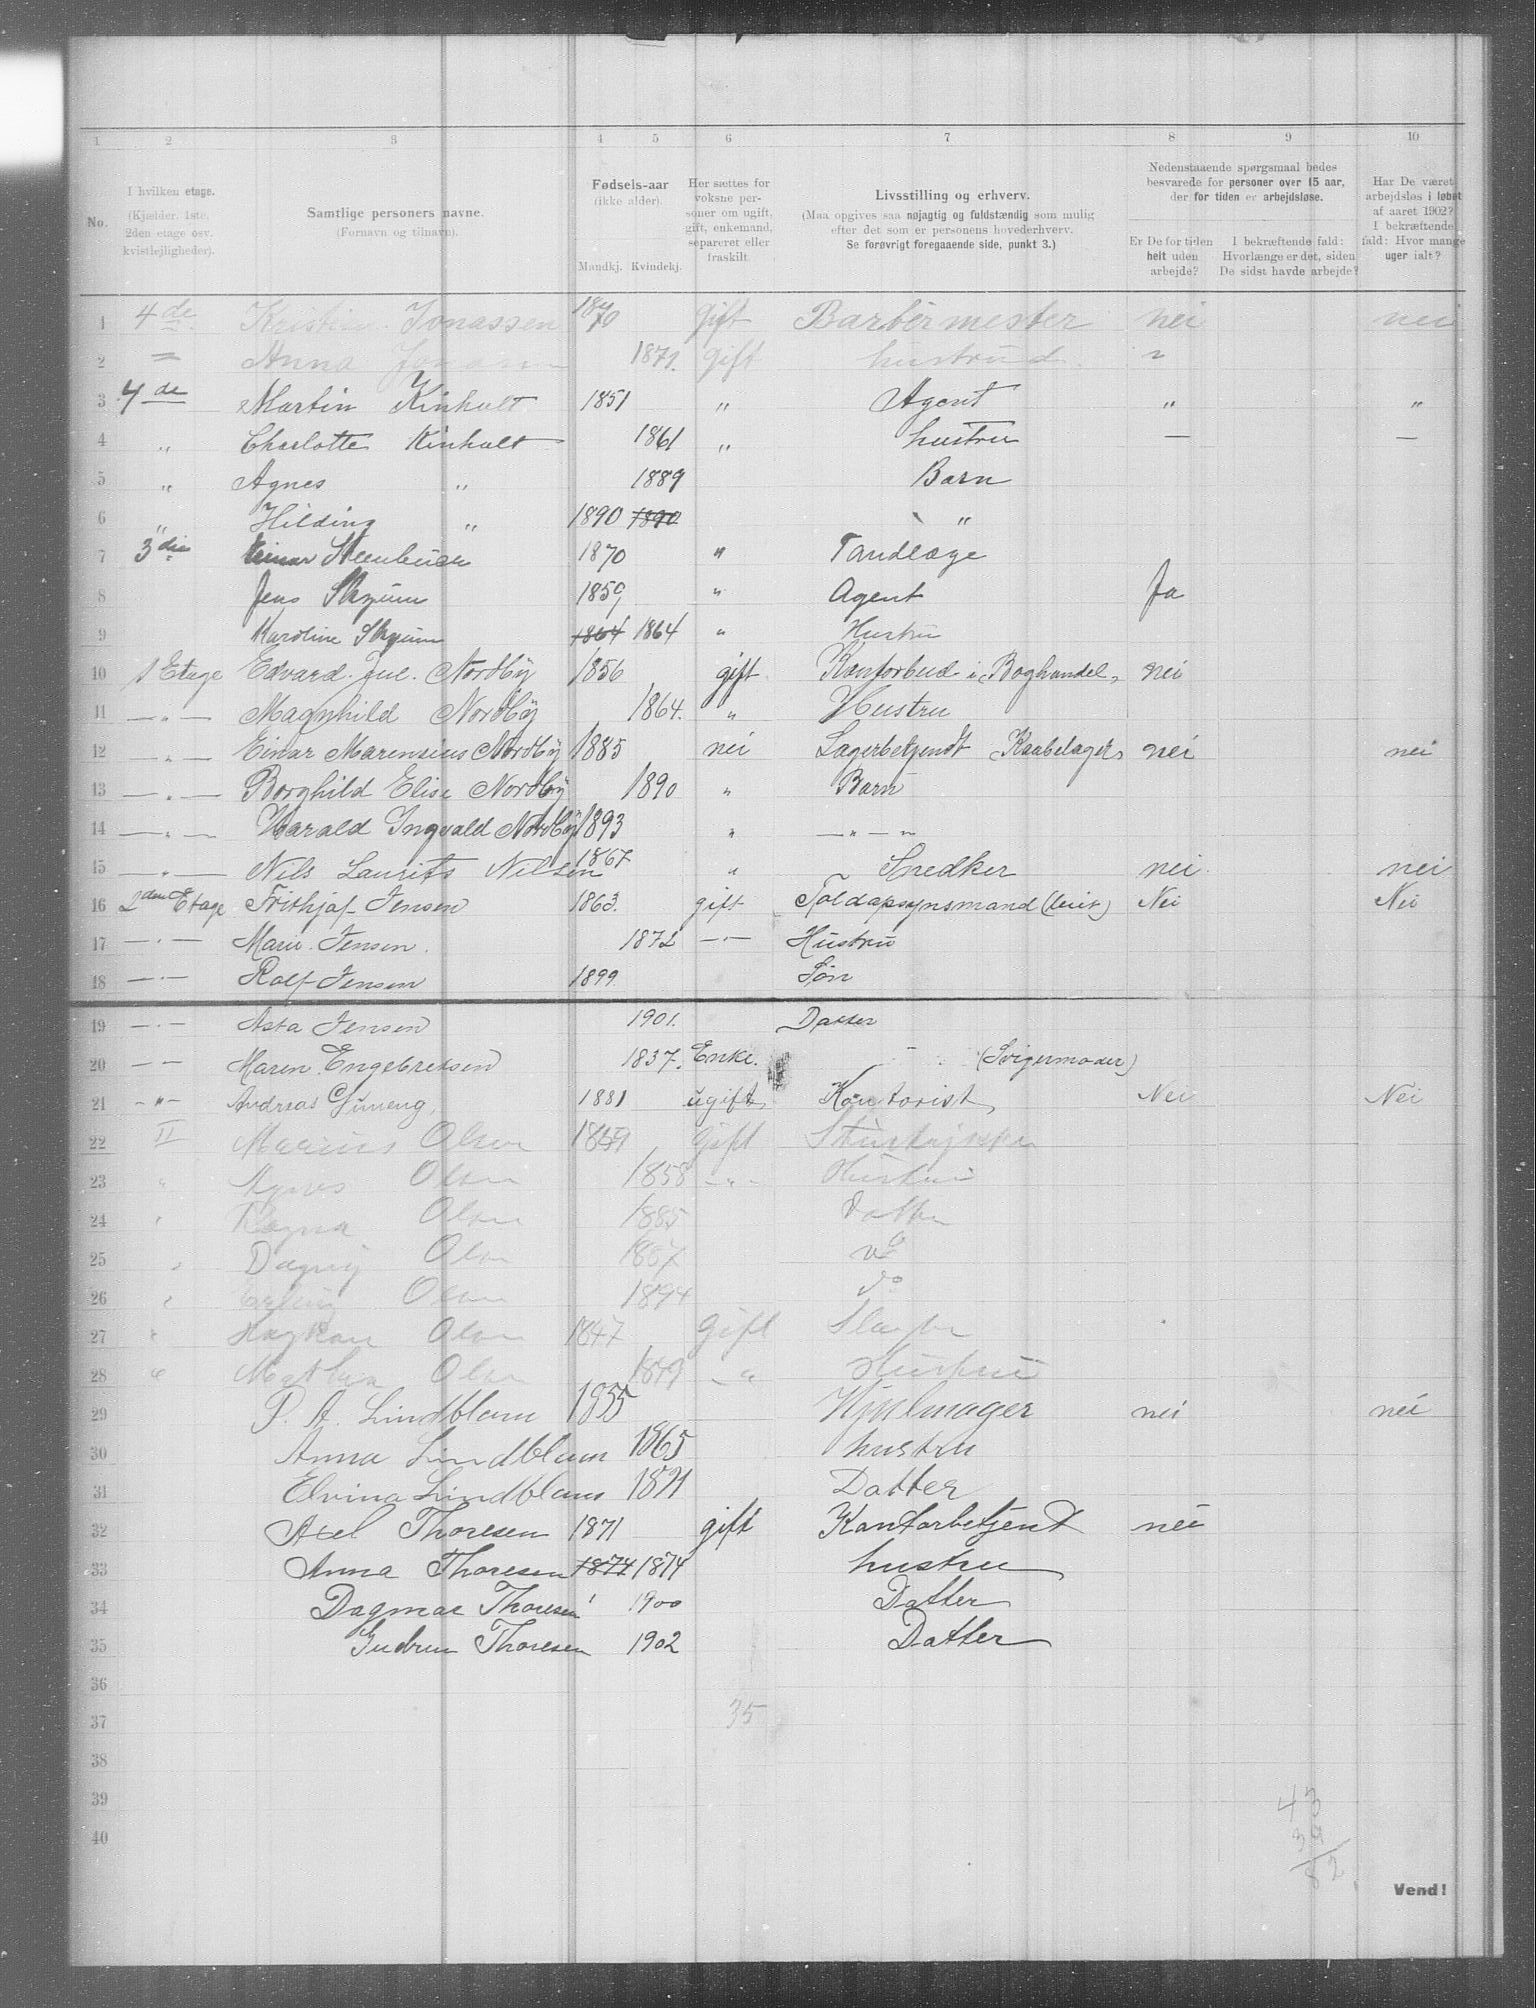 1 2 3 4 5 6 7 8 9 10
No.
I hvilken etage.
(Kjælder. 1ste. 2den etage osv. kvistlejligheder).
Samtlige personers navne.
(Fornavn og tilnavn).
Fødsels-aar
(ikke alder).
Mandkj. Kvindekj.
Her sættes for voksne personer om ugift, gift, enkemand, separeret eller fraskilt
Livsstilling og erhverv.
(Maa opgives saa nøjagtig og fuldstændig som mulig efter det som er personens hovederhverv.
Se forøvrigt foregaaende side, punkt 3.)
Nedenstaaende spørgsmaal bedes besvarede for personer over 15 aar, der for tiden er arbejdsløse.
Er De for tiden helt uden arbejde?
I bekræftende fald: Hvorlænge er det, siden De sidst havde arbejde?
Har De været arbejdsløs i løbet af aaret 1902? I bekræftende fald: Hvor mange uger ialt?
1 4de Kristian Jonassen 1870 Gift Barbermester nei nei
2 = Anna 1871. gift hustru
3 4de Martin Kinhult 1851 " Agent " "
4 " Charlotte Kinhult 1861 " hustru — —
5 " Agnes " 1889 Barn
6 " Hilding " 1890 1890 "
7 3die Einar Steenbuch 1870 " Tandlæge
8 Jens Skyum 1859 " Agent Ja
9 Karoline Skyum 1864 1864 " Hustru
10 1 Etage Edvard. Jul. Nordby 1856 gift Kontorbud i Boghandel, nei
11 —"— Magnhild Nordby 1864. " Hustru
12 —"— Einar Marensius Nordby 1885 nei Lagerbetjendt Kaabelager nei nei
13 —"— Borghild Elise Nordby 1890 " Barn
14 —"— Harald Ingvald Nordby 1893 " —"—"
15 —"— Nils Laurits Nilsen 1867 " Snedker nei nei
16 2den Etage Frithjof Jensen 1863. gift Toldopsynsmand Nei Nei
17 —"— Marie Jensen. 1872 —"— Hustru
18 —"— Rolf Jensen 1899. Søn
19 —"— Asta Jensen 1901. Datter
20 —"— Maren Engebretsen 1837. Enke. (Svigermoder)
21 —"— Andreas 1881 ugift, Kontorist, Nei Nei
22 II Marius Olsen 1859 Gift
23 " Agnes Olsen 1858 —"— Hustru
24 " Ragna Olsen 1885 Datter
25 " Dagny Olsen 1887 do
26 " Erling Olsen 1894 do
27 " Haakon Olsen 1847 Gift
28 " Mathea Olsen 1849 —"— Hustru
29 P. A. Lindblom 1855 Hjulmager nei nei
30 Anna Lindblom 1865 hustru
31 Elvina Lindblom 1891 Datter
32 Axel Thoresen 1871 gift Kontorbetjent nei
33 Anna Thoresen 1874 1874 hustru
34 Dagmar Thoresen 1900 Datter
35 Gudrun Thoresen 1902 Datter
36
37 35
38
39 43
40 39
82
Vend!